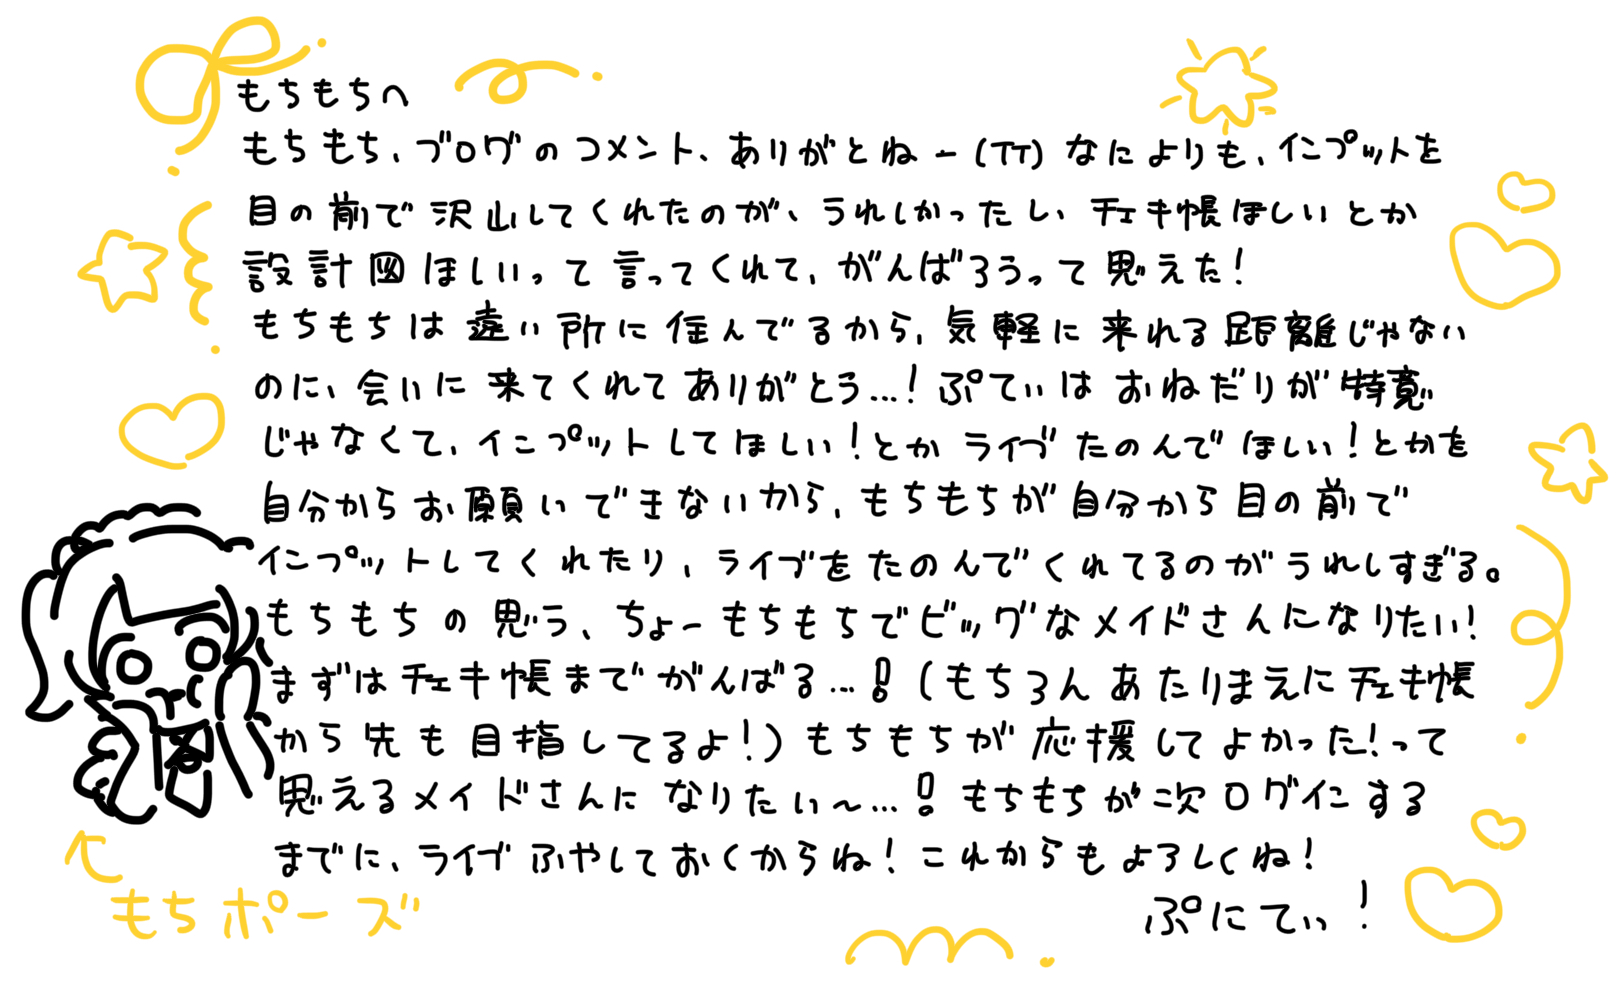 もちもちへ
もちもち、ブログのコメント、ありがとねー(TT)なによりも、インプットを
目の前で沢山してくれたのが、うれしかったし、チェキ帳ほしいとか
設計図ほしいって言ってくれて、がんばろうって思えた!
もちもちは遠い所に住んでるから、気軽に来れる距離じゃない
のに、会いに来てくれてありがとう...!ぷてぃはおねだりが特意
じゃなくて、インプットしてほしい!とかライブたのんでほしい!とかを
自分からお願いできないから、もちもちが自分から目の前で
インプットしてくれたり、ライブをたのんでくれてるのがうれしすぎる。
もちもちの思う、ちょーもちもちでビッグなメイドさんになりたい!
まずはチェキ帳までがんばる...!(もちろんあたりまえにチェキ帳
から先も目指してるよ!)もちもちが応援してよかった!って
思えるメイドさんになりたい〜...!もちもちが次ログインする
までに、ライブふやしておくからね!これからもよろしくね!
ぷにてぃっ!
もちポーズ